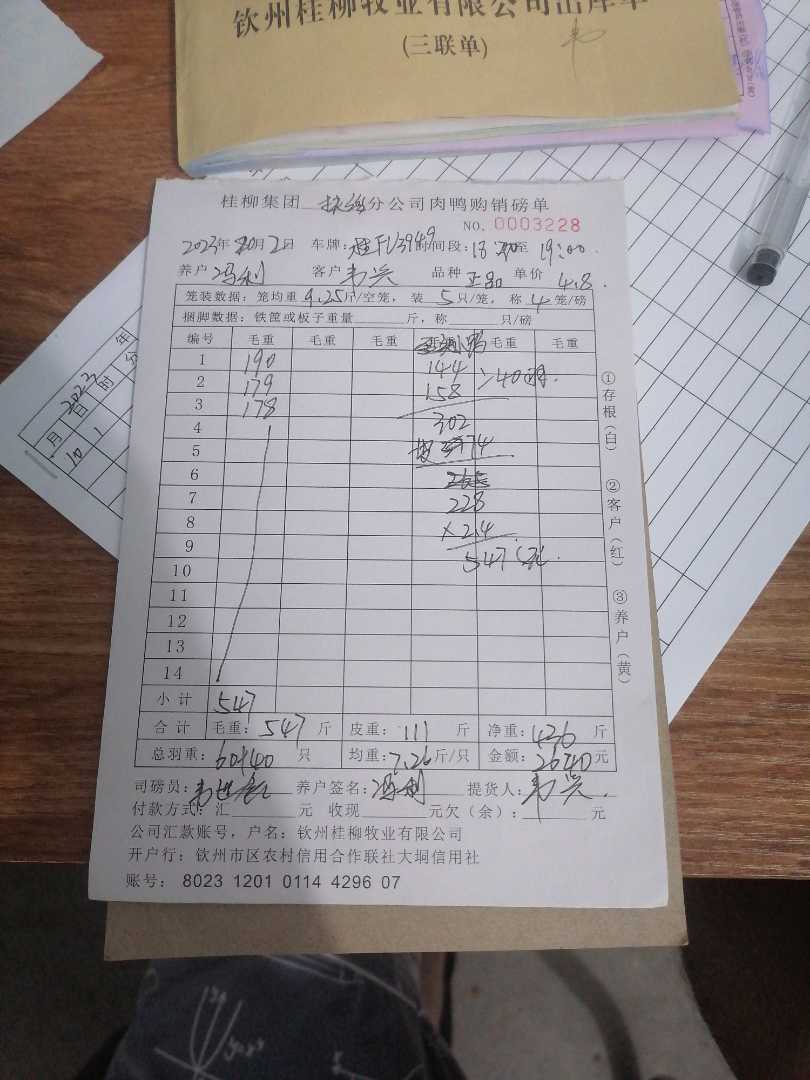 钦州桂柳牧业有限公司出库单
(三联单)
桂柳集团 分公司肉鸭购销磅单
NO. 0003228
2023年10月2日 车牌: 时间段: 至 19:00
养户 冯利 客户 韦兴 品种 正品 单价 4.8
笼装数据: 笼均重 9.25斤/空笼, 装 5只/笼, 称 4笼/磅
捆脚数据: 铁筐或板子重量 斤, 称 只/磅
编号 毛重 毛重 毛重 小鸭 毛重 毛重
1 190 144
2 179 158 >40
3 178
4 302
5 74
6
7 228
8 ×2.4
9 547
10
11
12
13
14
小计 547
合计 毛重: 547 斤 皮重: 111 斤 净重: 436 斤
总羽重: 60+40 只 均重: 7.26斤/只 金额: 2640元
司磅员: 养户签名: 冯利 提货人: 韦兴
付款方式: 汇 元 收现 元欠(余): 元
公司汇款账号, 户名: 钦州桂柳牧业有限公司
开户行: 钦州市区农村信用合作联社大垌信用社
账号: 8023 1201 0114 4296 07
①存根(白)
②客户(红)
③养户(黄)
2023 年
月 日 时 分
10 1